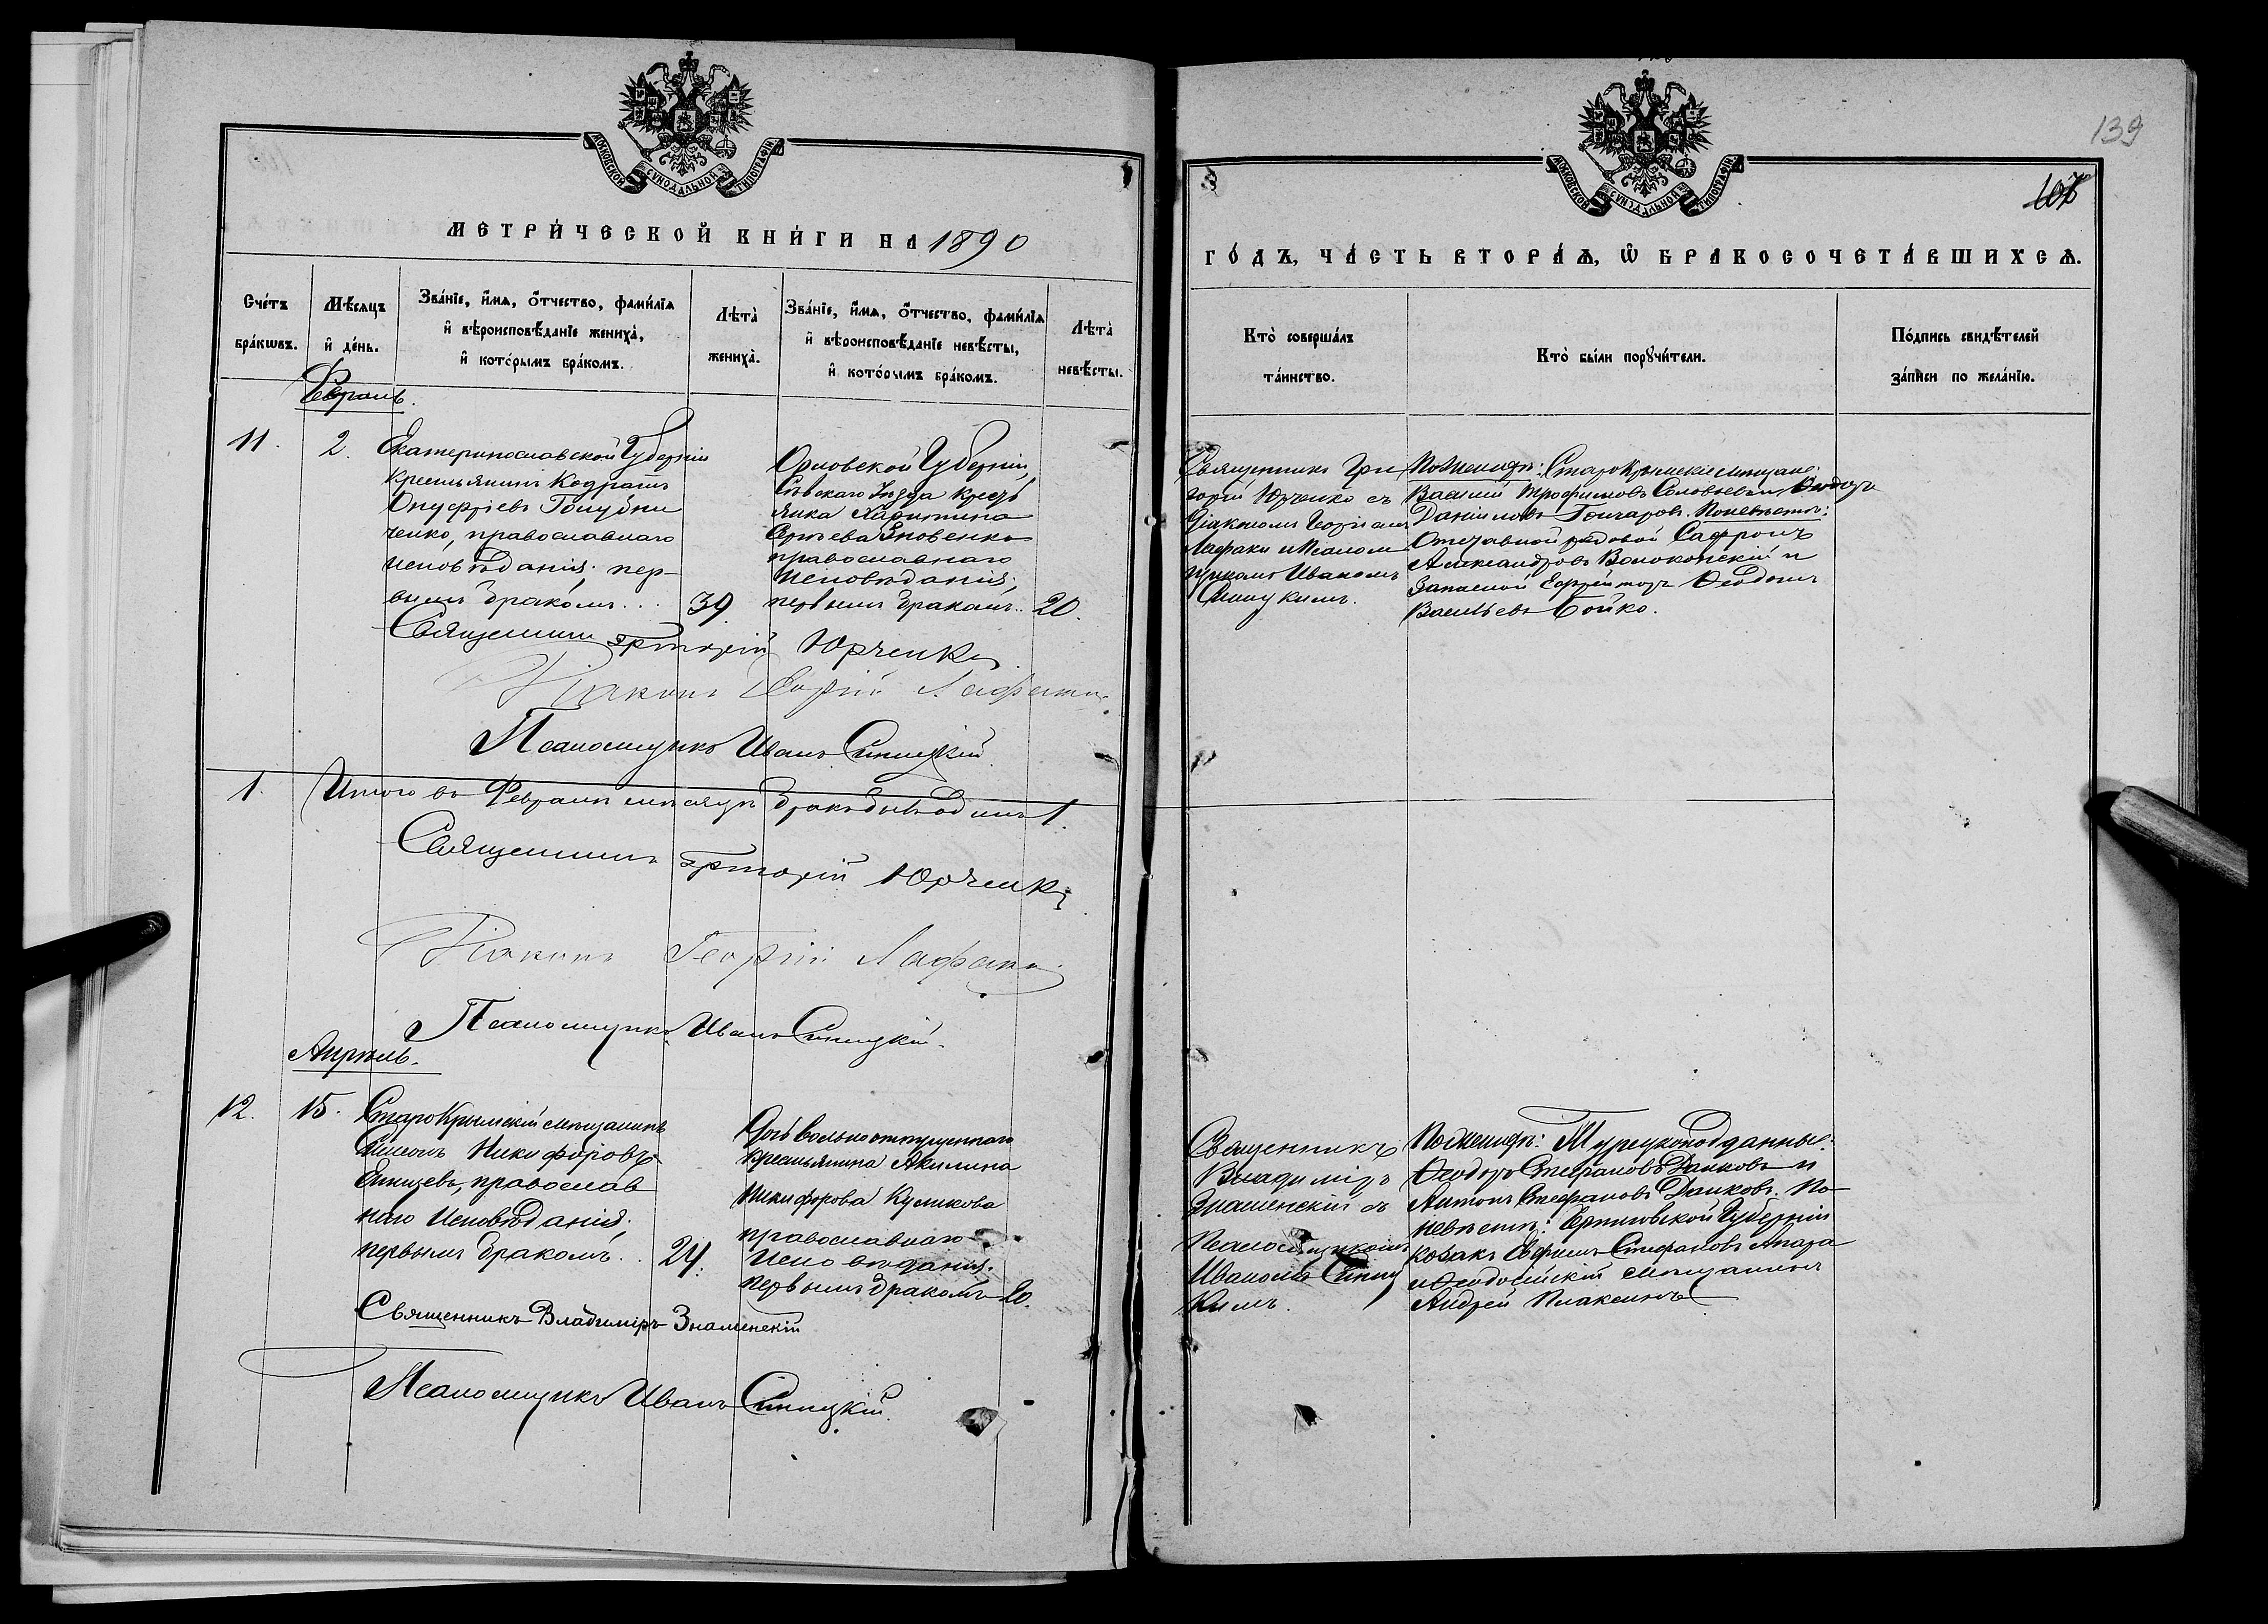 МОСКОВСКОЙ СѴНОДАЛЬНОЙ ТИПОГРАФІИ
МЕТРИ́ЧЕСКОЙ КНИ́ГИ НА 1890
Сче́тъ бра́кѡвъ.
Мѣ́сяцъ и҆ де́нь.
Зва́нїе, и҆́мѧ, ѻ҆́тчество, фами́лїѧ
и҆ вѣроисповѣ́данїе жениха̀,
и҆ кото́рымъ бра́комъ.
Лѣта̀ жениха̀.
Зва́нїе, и҆́мѧ, ѻ҆́тчество, фами́лїѧ
и҆ вѣроисповѣ́данїе невѣ́сты,
и҆ кото́рымъ бра́комъ.
Лѣта̀ невѣ́сты.
Февраль.
11.
2.
Екатеринославской Губерніи
Крестьянинъ Кодратъ
Онуфріевъ Голубни
ченко, православнаго
исповѣданія; пер-
вымъ бракомъ...
39.
Орловской Губерніи,
Сѣвскаго Уѣзда Кресть
янка Харитина
православнаго
исповѣданія;
первымъ бракомъ..
20.
Священникъ Григорій Юрченко
Діаконъ Георгій Лафаки
Псаломщикъ Иванъ Синицкій.
1.
Итого въ Февралѣ мѣсяцѣ бракъ былъ одинъ 1.
Священникъ Григорій Юрченко
Діаконъ Георгій Лафаки
Псаломщикъ Иванъ Синицкій.
Апрѣль.
12.
15.
СтароКрымскій мѣщанинъ
Симеонъ Никифоровъ
православ
наго исповѣданія;
первымъ бракомъ..
24.
Дочь вольноотпущеннаго
крестьянина Акилина
Никифорова Куликова
православнаго
исповѣданія;
первымъ бракомъ
20.
Священникъ Владиміръ Знаменскій
Псаломщикъ Иванъ Синицкій.
139
107
МОСКОВСКОЙ СѴНОДАЛЬНОЙ ТИПОГРАФІИ
ГО́ДЪ, ЧА́СТЬ ВТОРА́Ѧ, Ѡ҆ БРАКОСОЧЕТА́ВШИХСѦ.
Кто̀ соверша́лъ та́инство.
Кто̀ бы́ли порꙋчи́тели.
По́дпись свидѣ́телей за́писи по жела́нїю.
Священникъ Гри
горій Юрченко съ
Діакономъ Георгіемъ
Лафаки и Псалом
щикомъ Иваномъ
Синицкимъ.
По Женихѣ: СтароКрымскіе мѣщане:
Василій Трофимовъ Соловьевъ и Ѳеодоръ
Даніиловъ Гончаровъ. По невѣстѣ:
Отставной рядовой Сафронъ
Александровъ Волоконскій и
Запасной Ефрейторъ Ѳеодотъ
Васильевъ Бойко.
Священникъ
Владиміръ
Знаменскій съ
Псаломщикомъ
Иваномъ Синиц
кимъ.
По женихѣ: Турецкоподданные:
Ѳеодоръ Стефановъ Данковъ и
Антонъ Стефановъ Данковъ. По
невѣстѣ: Черниговской Губерніи
козакъ Ефимъ Стефановъ
и Ѳеодосійскій мѣщанинъ
Андрей Плаксинъ